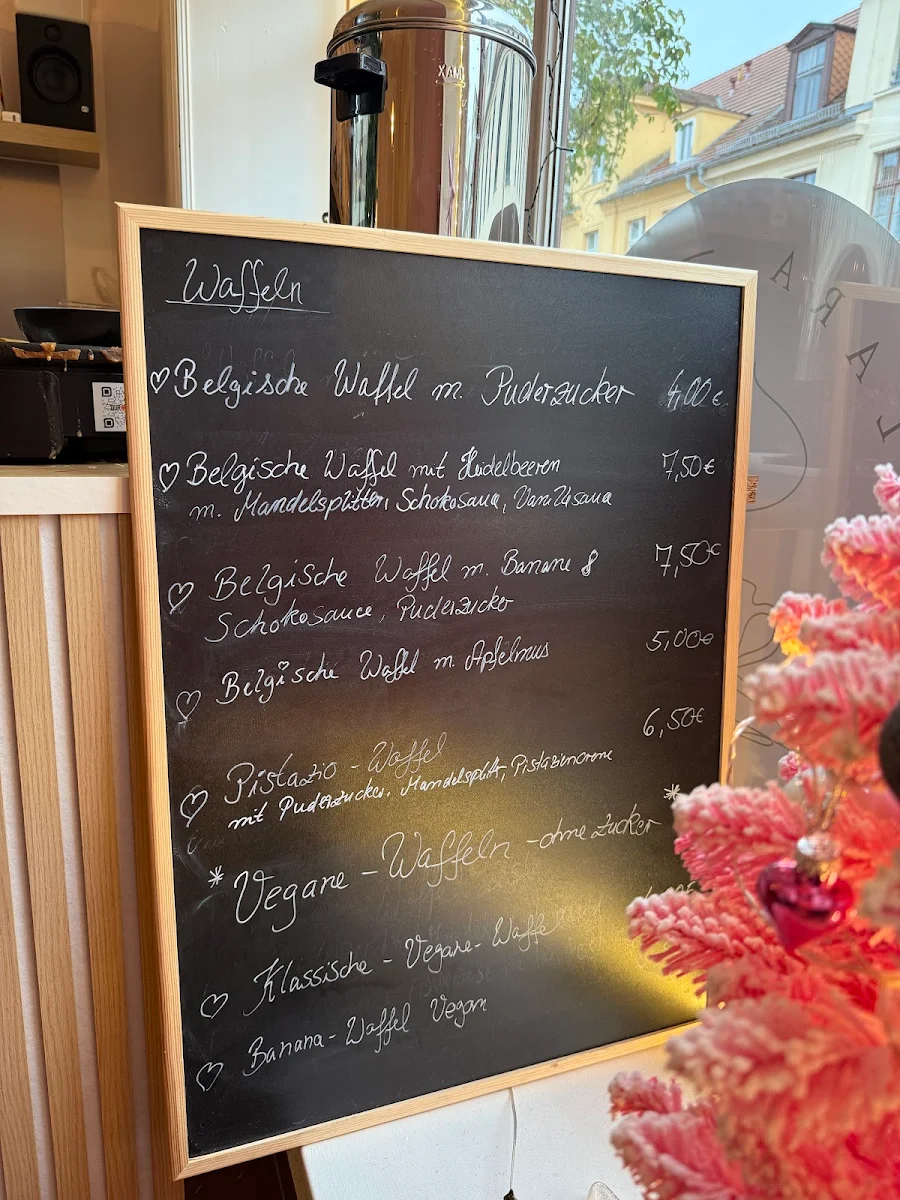 Waffeln
Belgische Waffel m. Puderzucker 4,00 €
Belgische Waffel mit Heidelbeeren 7,50 €
m. Mandelsplitten, Schokosauce,
Belgische Waffel m. Banane & 7,50 €
Schokosauce, Puderzucker
Belgische Waffel m. Apfelmus 5,00 €
Pistazio - Waffel 6,50 €
mit Puderzucker, Mandelsplitt, Pistaziencreme
* Vegane - Waffeln - ohne Zucker *
Klassische - Vegane - Waffel
Banana - Waffel Vegan
XAMAX